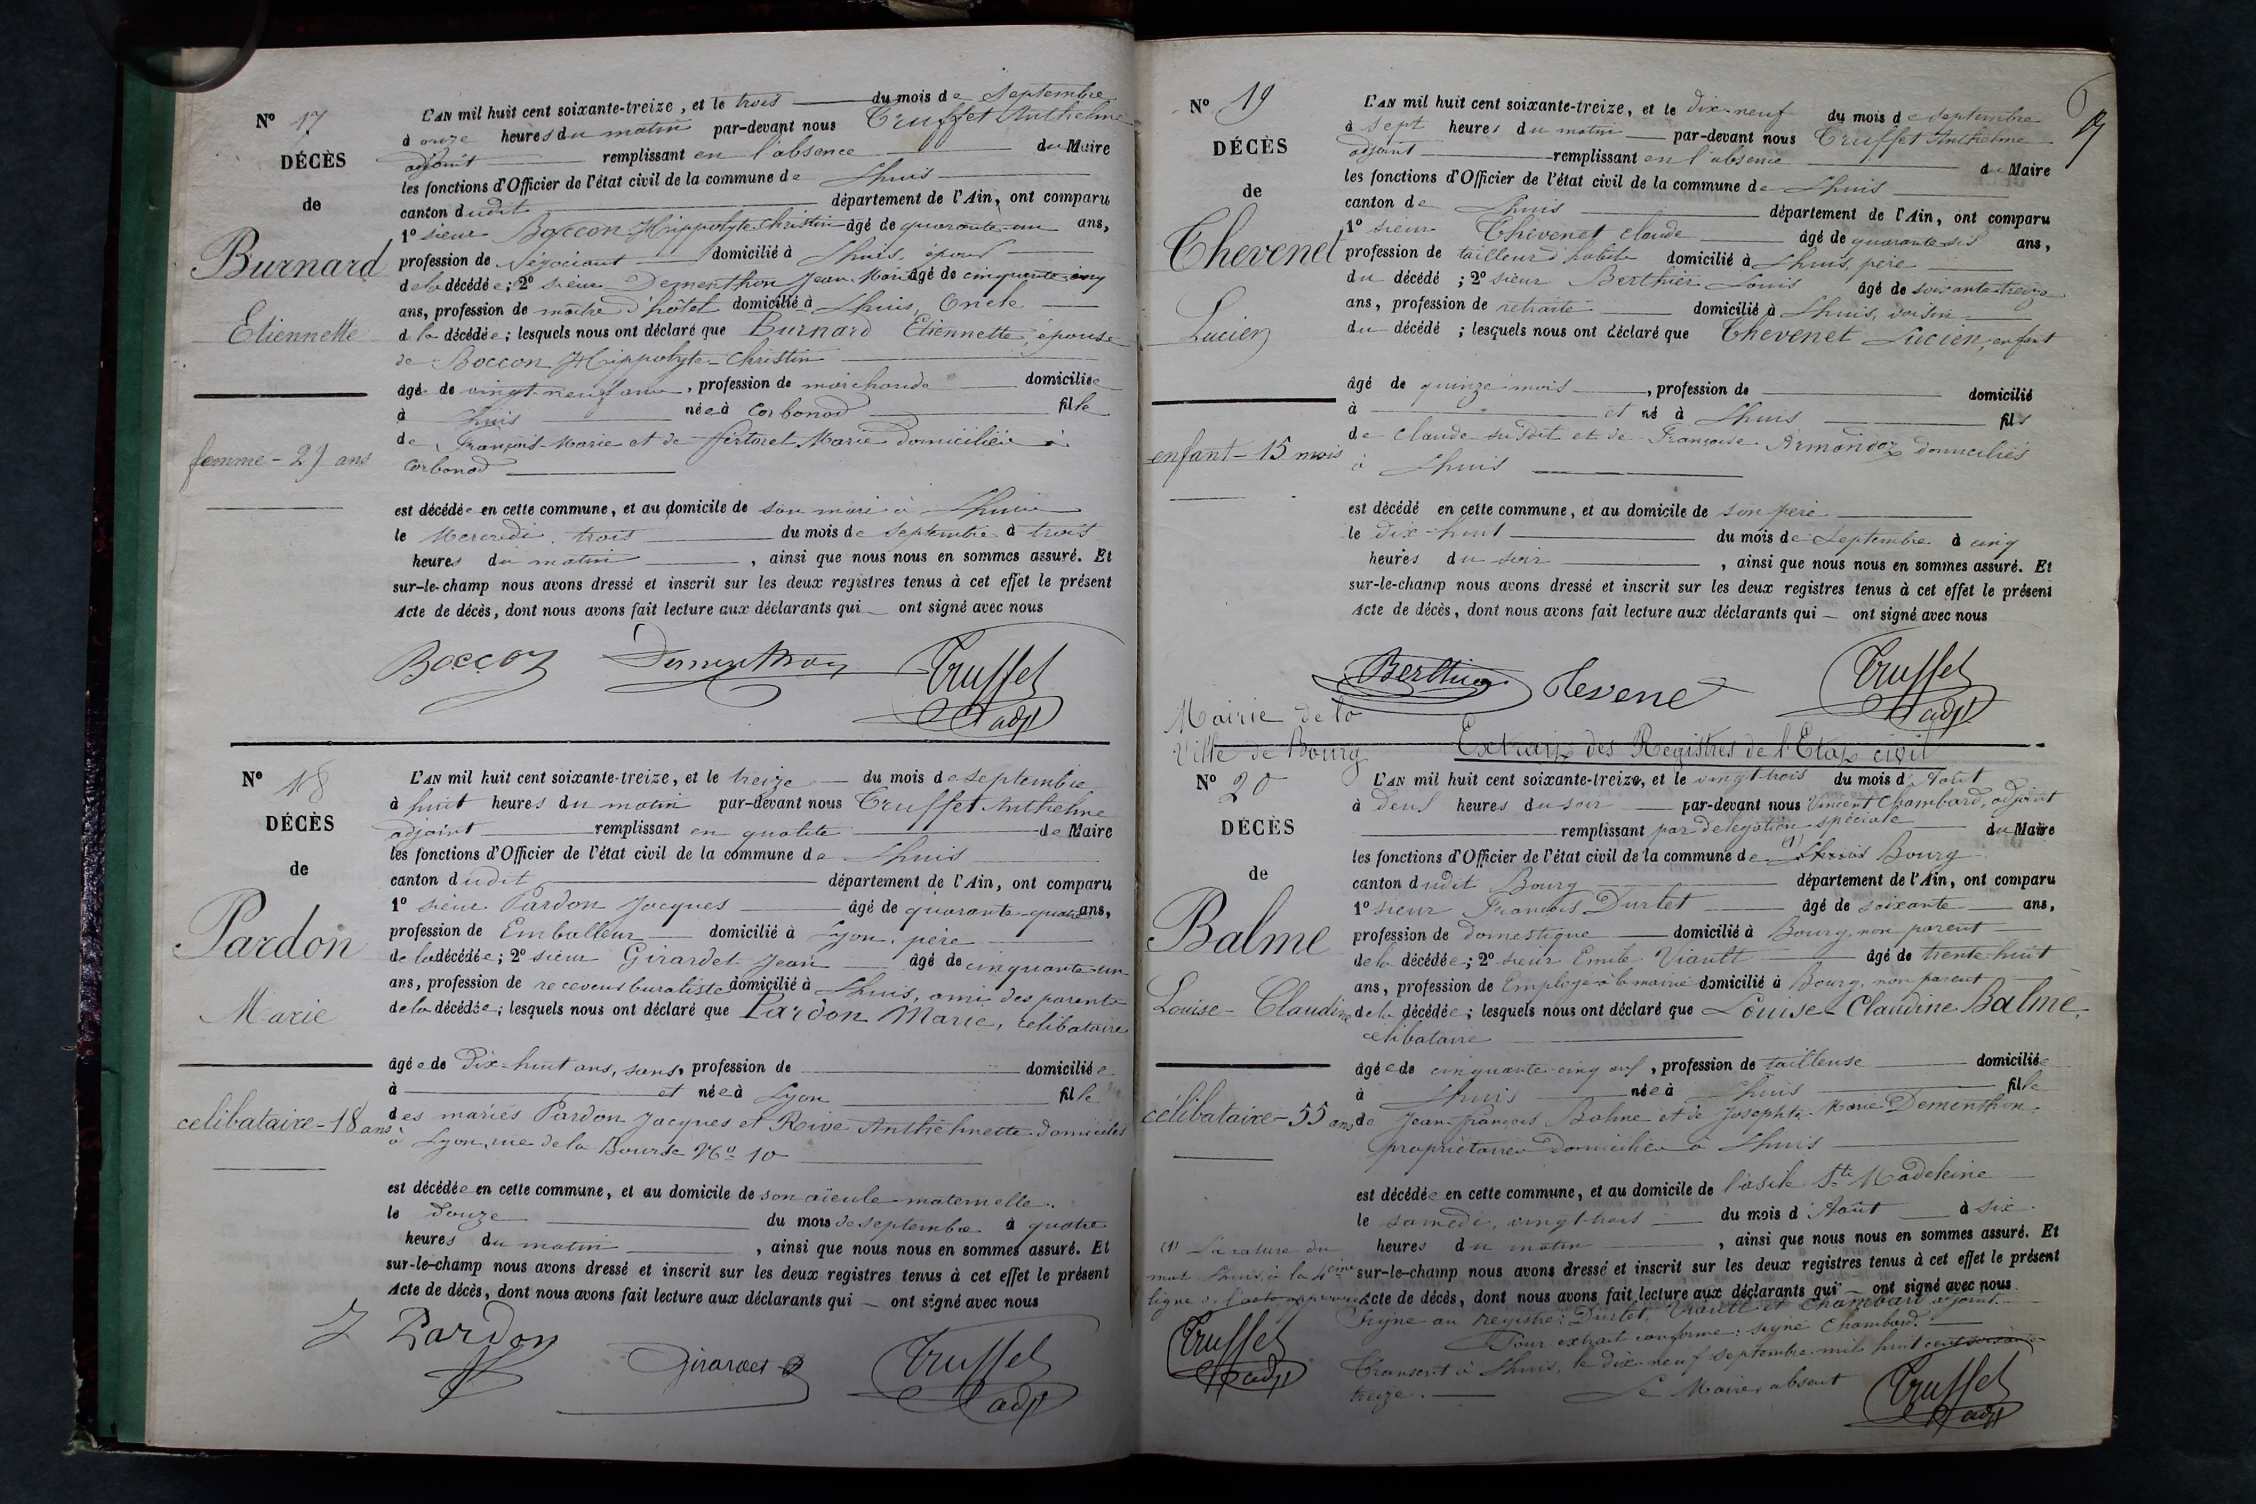 N° 17
DÉCÈS
de
Burnard
Etiennette
femme - 29 ans
L'AN mil huit cent soixante-treize, et le trois du mois de Septembre
à onze heures du matin par-devant nous Truffet Anthelme
adjoint remplissant en l'absence du Maire
les fonctions d'Officier de l'état civil de la commune de Lhuis
canton dudit département de l'Ain, ont comparu
1° sieur Boccon Hippolyte Christin âgé de quarante-un ans,
profession de Négociant domicilié à Lhuis, époux
de la décédée; 2° sieur Dementhon Jean Marie âgé de cinquante cinq
ans, profession de maître d'hôtel domicilié à Lhuis, Oncle
de la décédée; lesquels nous ont déclaré que Burnard Etiennette, épouse
de Boccon Hippolyte-Christin
âgé de vingt-neuf ans, profession de marchande domiciliée
à Lhuis née à Corbonod fille
de François-Marie et de Pertoret Marie domiciliés à
Corbonod
est décédée en cette commune, et au domicile de son mari à Lhuis
le Mercredi trois du mois de Septembre à trois
heures du matin, ainsi que nous nous en sommes assuré. Et
sur-le-champ nous avons dressé et inscrit sur les deux registres tenus à cet effet le présent
Acte de décès, dont nous avons fait lecture aux déclarants qui — ont signé avec nous
Boccon Dementhon Truffet
adjt
N° 18
DÉCÈS
de
Pardon
Marie
celibataire - 18 ans
L'AN mil huit cent soixante-treize, et le treize du mois de septembre
à huit heures du matin par-devant nous Truffet Anthelme
adjoint remplissant en qualité de Maire
les fonctions d'Officier de l'état civil de la commune de Lhuis
canton dudit département de l'Ain, ont comparu
1° sieur Pardon Jacques âgé de quarante-quatre ans,
profession de Emballeur domicilié à Lyon, père
de la décédée; 2° sieur Girardet Jean âgé de cinquante-un
ans, profession de receveur buraliste domicilié à Lhuis, ami des parents
de la décédée; lesquels nous ont déclaré que Pardon Marie, celibataire
âgée de Dix-huit ans, sans, profession de domiciliée
à et née à Lyon fille
des mariés Pardon Jacques et Rive Anthelmette domiciliés
à Lyon, rue de la Bourse N° 10
est décédée en cette commune, et au domicile de son aïeule maternelle.
le Douze du mois de septembre à quatre
heures du matin, ainsi que nous nous en sommes assuré. Et
sur-le-champ nous avons dressé et inscrit sur les deux registres tenus à cet effet le présent
Acte de décès, dont nous avons fait lecture aux déclarants qui — ont signé avec nous
J Pardon Girardet Truffet
adjt
N° 19
DÉCÈS
de
Thevenet
Lucien
enfant - 15 mois
L'AN mil huit cent soixante-treize, et le dix-neuf du mois de septembre
à sept heures du matin par-devant nous Truffet Anthelme
adjoint remplissant en l'absence du Maire
les fonctions d'Officier de l'état civil de la commune de Lhuis
canton de Lhuis département de l'Ain, ont comparu
1° sieur Thevenet Claude âgé de quarante-six ans,
profession de tailleur d'habits domicilié à Lhuis, père
du décédé; 2° sieur Berthier Louis âgé de soixante-treize
ans, profession de retraité domicilié à Lhuis, voisin
du décédé; lesquels nous ont déclaré que Thevenet Lucien, enfant
âgé de quinze mois, profession de domicilié
à et né à Lhuis fils
de Claude susdit et de Françoise Armandez domiciliés
à Lhuis
est décédé en cette commune, et au domicile de son père
le Dix-huit du mois de Septembre à cinq
heures du soir, ainsi que nous nous en sommes assuré. Et
sur-le-champ nous avons dressé et inscrit sur les deux registres tenus à cet effet le présent
Acte de décès, dont nous avons fait lecture aux déclarants qui — ont signé avec nous
Berthier Tevene Truffet
adjt
Mairie de la
Ville de Bourg
Extrait des Registres de l'Etat civil
N° 20
DÉCÈS
de
Balme
Louise-Claudine
célibataire - 55 ans
L'AN mil huit cent soixante-treize, et le vingt-trois du mois d'Août
à Deux heures du soir par-devant nous Vincent Chambard, adjoint
remplissant par délégation spéciale du Maire
les fonctions d'Officier de l'état civil de la commune de (1) Lhuis Bourg
canton dudit Bourg département de l'Ain, ont comparu
1° sieur François Durlet âgé de soixante ans,
profession de domestique domicilié à Bourg, non parent
de la décédée; 2° sieur Emile Viault âgé de trente huit
ans, profession de Employé à la mairie domicilié à Bourg, non parent
de la décédée; lesquels nous ont déclaré que Louise-Claudine Balme,
célibataire
âgée de cinquante-cinq ans, profession de tailleuse domiciliée
à Lhuis née à Lhuis fille
de Jean-François Balme et de Josephte-Marie Dementhon,
propriétaires domiciliés à Lhuis
est décédée en cette commune, et au domicile de l'asile Ste Madeleine
le samedi, vingt-trois du mois d'Août à six
heures du matin, ainsi que nous nous en sommes assuré. Et
sur-le-champ nous avons dressé et inscrit sur les deux registres tenus à cet effet le présent
Acte de décès, dont nous avons fait lecture aux déclarants qui — ont signé avec nous
Signé au registre: Durlet, Viault et Chambard adjoint.
Pour extrait conforme: signé Chambard.
Transcrit à Lhuis, le dix-neuf septembre mil huit cent soixante-
treize. Le Maire absent
Truffet
adjt
(1) La rature du
mot Lhuis à la 4ème
ligne de l'acte approuvée
Truffet
adjt